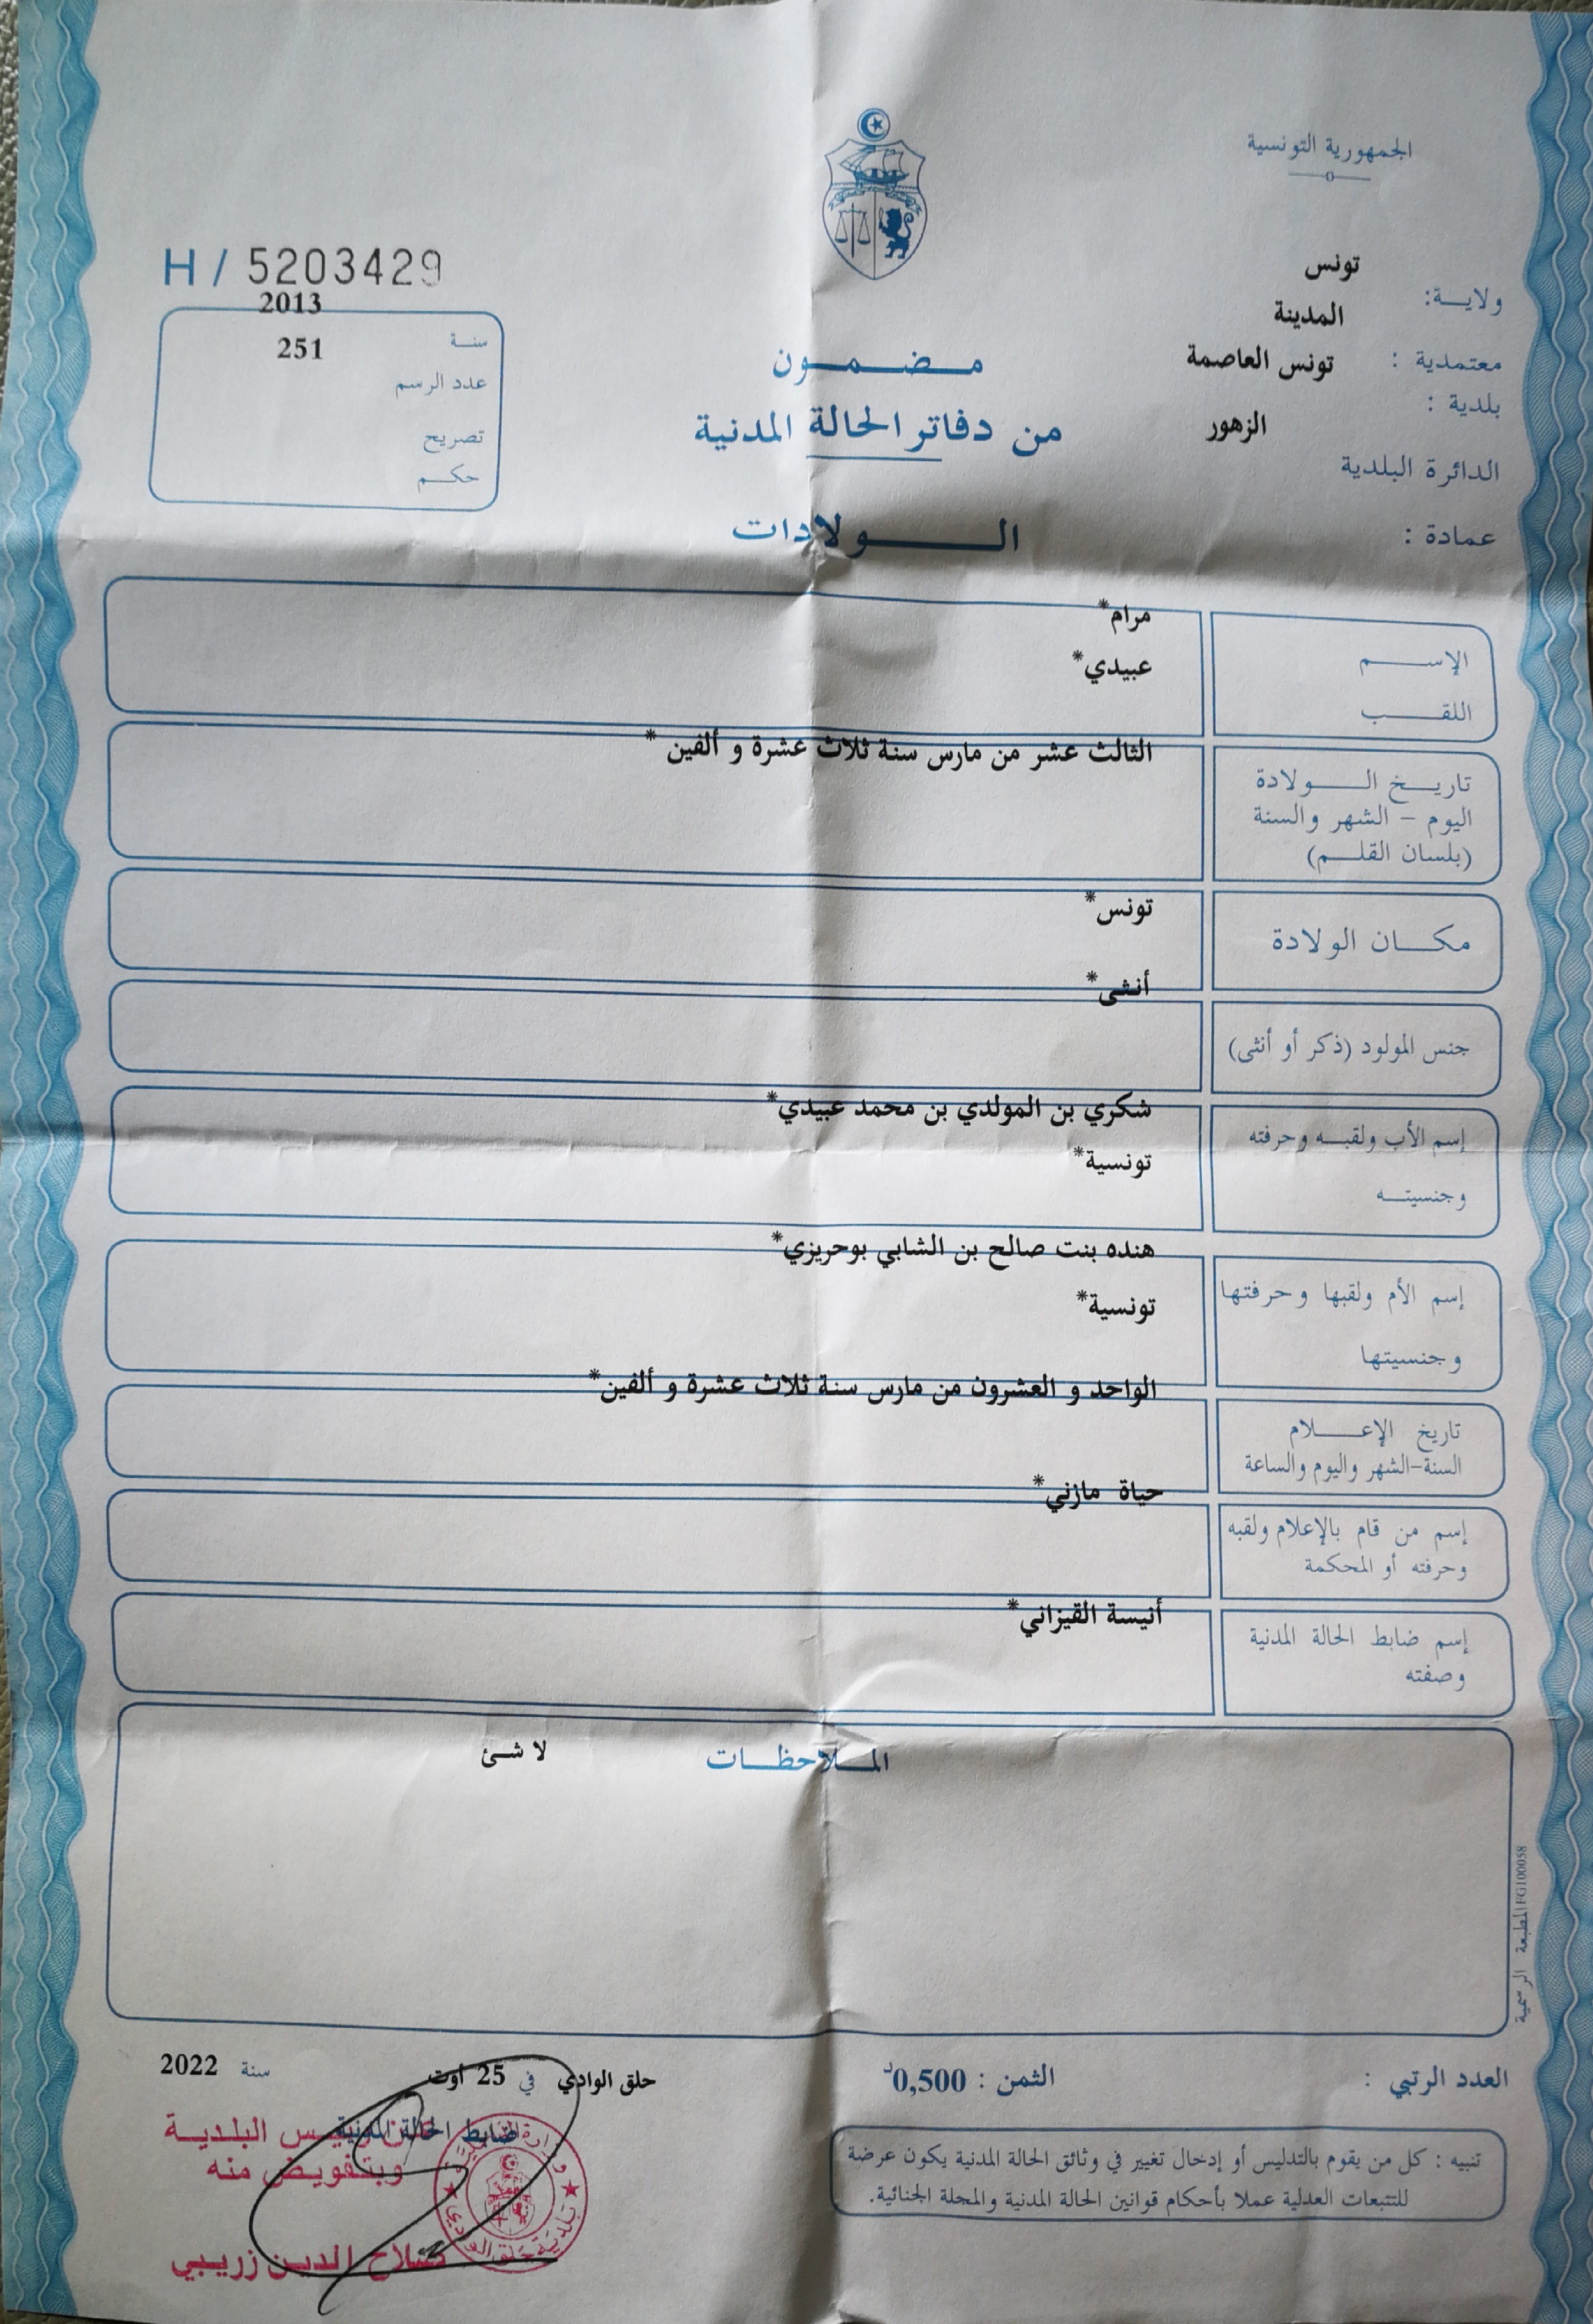 الجمهورية التونسية
تونس
ولايـــة:
المدينة
معتمدية :
تونس العاصمة
بلدية :
الزهور
الدائرة البلدية
عمادة :
H / 5203429
2013
سنــة
251
عدد الرسم
تصريح
حكــم
مـــضـــمـــون
من دفاتر الحالة المدنية
الـــــولادات
مرام*
الإســـــم
عبيدي*
اللقـــــب
الثالث عشر من مارس سنة ثلاث عشرة و ألفين *
تاريـــخ الـــــولادة
اليوم – الشهر والسنة
(بلسان القلـــم)
تونس*
مكـــان الولادة
أنثى*
جنس المولود (ذكر أو أنثى)
شكري بن المولدي بن محمد عبيدي*
إسم الأب ولقبـــه وحرفته
تونسية*
وجنسيتـــه
هنده بنت صالح بن الشابي بوحريزي*
إسم الأم ولقبها وحرفتها
تونسية*
وجنسيتها
الواحد و العشرون من مارس سنة ثلاث عشرة و ألفين*
تاريخ الإعـــــلام
السنة-الشهر واليوم والساعة
حياة مازني*
إسم من قام بالإعلام ولقبه
وحرفته أو المحكمة
أنيسة القيزاني*
إسم ضابط الحالة المدنية
وصفته
المـــلاحظـــات لا شئ
المطبعة الرسمية IFG100058
العدد الرتبي : الثمن : 0,500د
حلق الوادي في 25 أوت سنة 2022
ضابط الحالة المدنية
رئيـس البلديـة
وبتفويـض منه
صلاح الديـن زريـبي
بلدية حلق الوادي
تنبيه : كل من يقوم بالتدليس أو إدخال تغيير في وثائق الحالة المدنية يكون عرضة
للتتبعات العدلية عملا بأحكام قوانين الحالة المدنية والمجلة الجنائية.